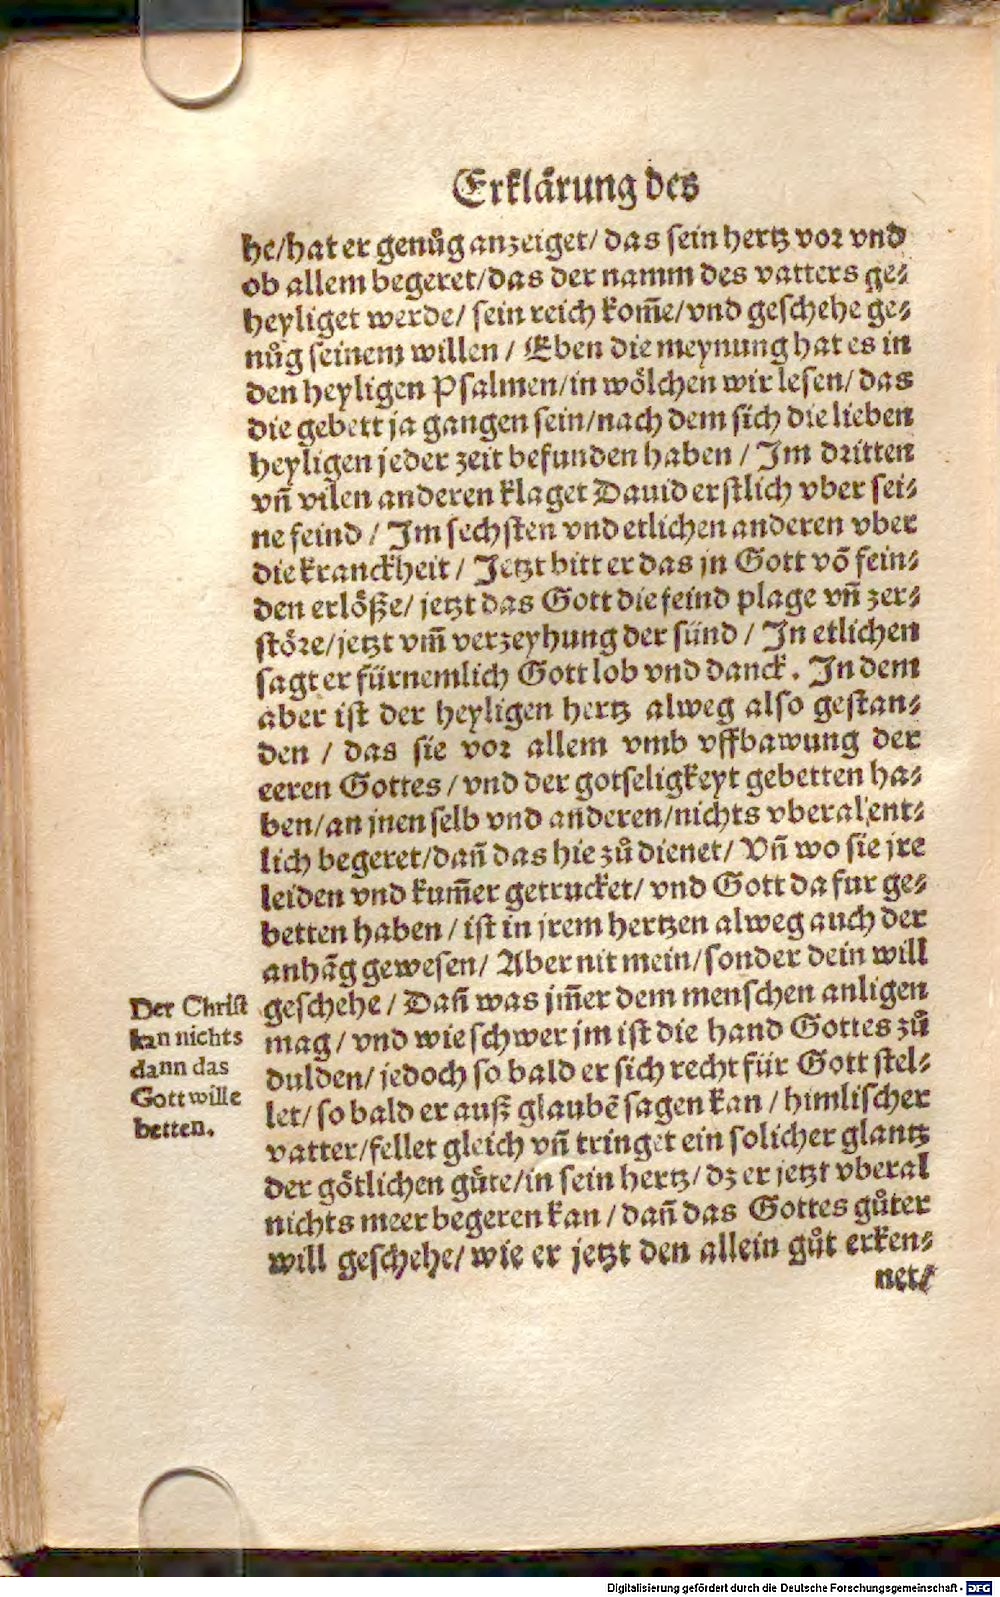 Erklärung des
he/hat er genůg anzeiget/ das sein hertz vor vnd
ob allem begeret/das der namm des vatters ge-
heyliget werde/ sein reich kom̃e/vnd geschehe ge-
nůg seinem willen / Eben die meynung hat es in
den heyligen Psalmen/in wölchen wir lesen/ das
die gebett ja gangen sein/nach dem sich die lieben
heyligen jeder zeit befunden haben / Im dritten
vñ vilen anderen klaget Dauid erstlich vber sei-
ne feind / Im sechsten vnd etlichen anderen vber
die kranckheit / Jetzt bitt er das jn Gott võ fein-
den erlöße/ jetzt das Gott die feind plage vñ zer-
störe/jetzt vm̃ verzeyhung der sünd / In etlichen
sagt er fürnemlich Gott lob vnd danck. In dem
aber ist der heyligen hertz alweg also gestan-
den / das sie vor allem vmb vffbawung der
eeren Gottes / vnd der gotseligkeyt gebetten ha-
ben/an jnen selb vnd anderen/nichts vberal entlich
lich begeret/dañ das hie zů dienet/ Vñ wo sie jre
leiden vnd kum̃er getrucket/ vnd Gott da fur ge-
betten haben / ist in jrem hertzen alweg auch der
anhãg gewesen/ Aber nit mein/sonder dein will
Der Christ
kan nichts
dann das
Gott wille
betten.
geschehe / Dañ was jm̃er dem menschen anligen
mag / vnd wie schwer jm ist die hand Gottes zů
dulden/ jedoch so bald er sich recht für Gott stel-
let/ so bald er auß glaubẽ sagen kan / himlischer
vatter/fellet gleich vñ tringet ein solicher glantz
der götlichen güte/in sein hertz/ dz er jetzt vberal
nichts meer begeren kan / dañ das Gottes gůter
will geschehe/ wie er jetzt den allein gůt erken-
net/
Digitalisierung gefördert durch die Deutsche Forschungsgemeinschaft - DFG